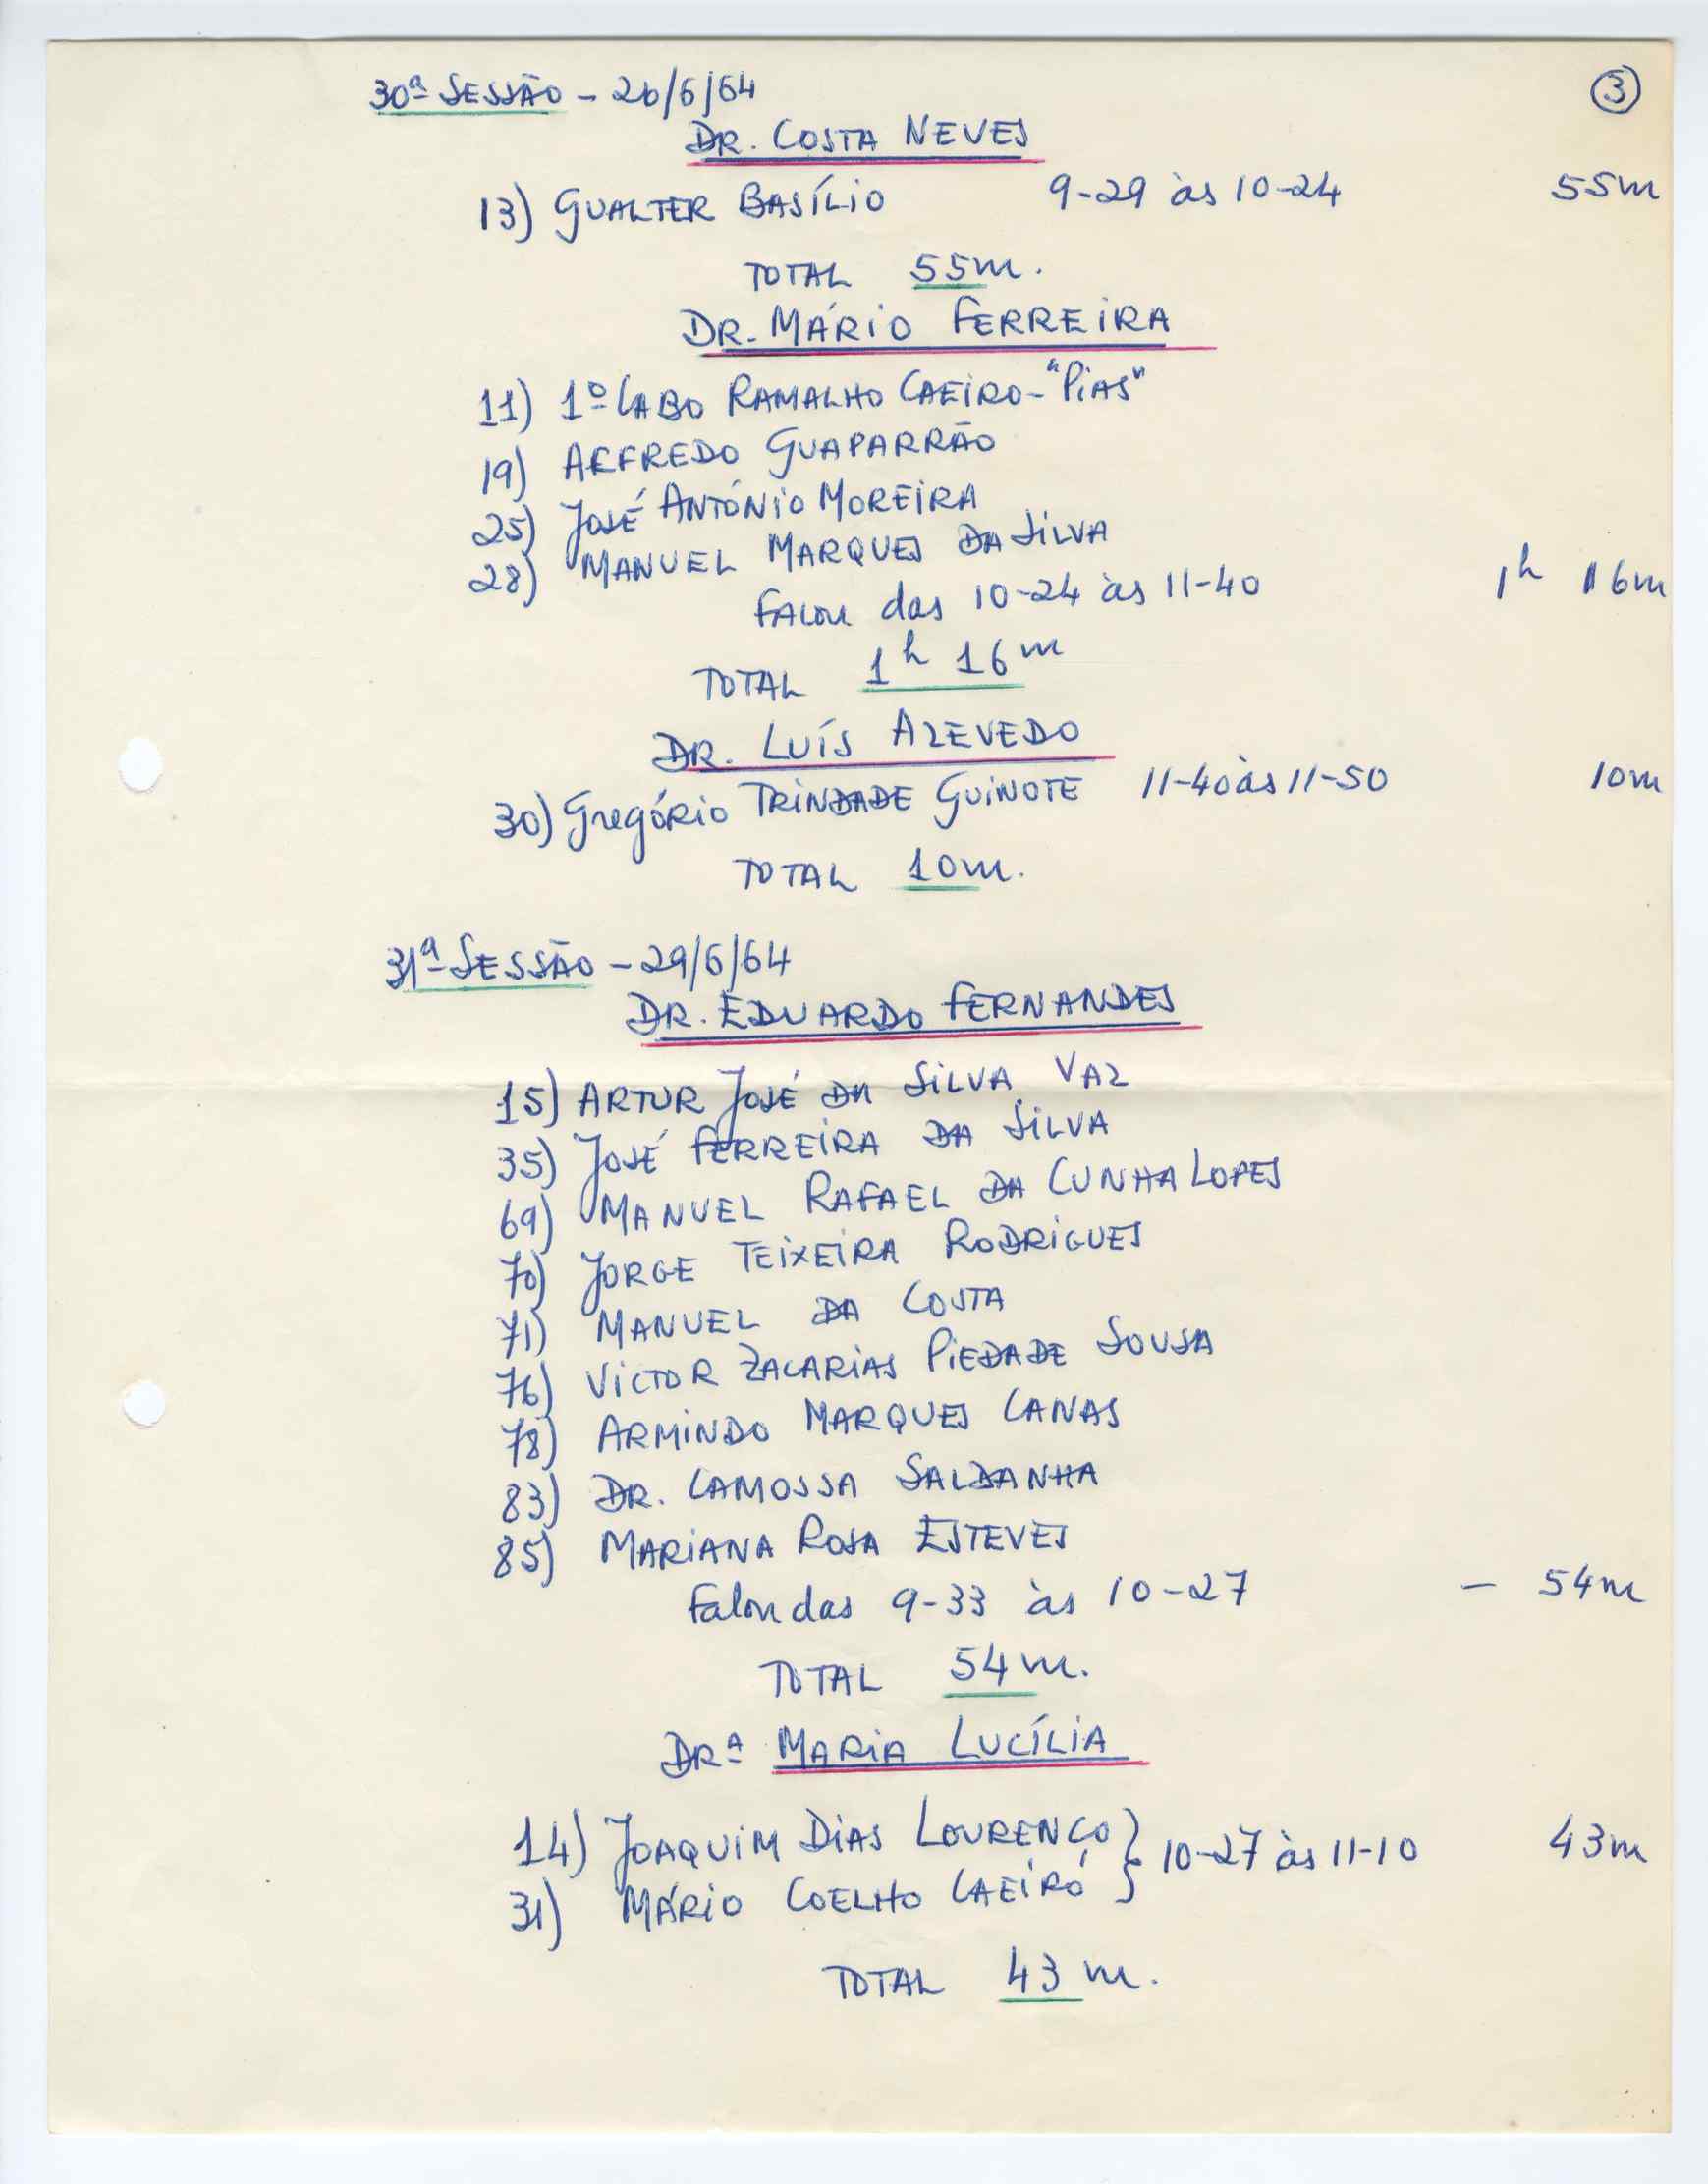 3
30ª SESSÃO - 26/6/64
DR. COSTA NEVES
13) GUALTER BASÍLIO 9-29 às 10-24 55m
TOTAL 55m.
DR. MÁRIO FERREIRA
11) 1º CABO RAMALHO CAEIRO - "PIAS"
19) ALFREDO GUAPARRÃO
25) JOSÉ ANTÓNIO MOREIRA
28) MANUEL MARQUES DA SILVA
FALOU das 10-24 às 11-40 1h 16m
TOTAL 1h 16m
DR. LUÍS AZEVEDO
30) Gregório TRINDADE GUINOTE 11-40 às 11-50 10m
TOTAL 10m.
31ª SESSÃO - 29/6/64
DR. EDUARDO FERNANDES
15) ARTUR JOSÉ DA SILVA VAZ
35) JOSÉ FERREIRA DA SILVA
69) MANUEL RAFAEL DA CUNHA LOPES
70) JORGE TEIXEIRA RODRIGUES
71) MANUEL DA COSTA
76) VICTOR ZACARIAS PIEDADE SOUSA
78) ARMINDO MARQUES CANAS
83) DR. CAMOSSA SALDANHA
85) MARIANA ROSA ESTEVES
Falou das 9-33 às 10-27 - 54m
TOTAL 54m.
DRª MARIA LUCÍLIA
14) JOAQUIM DIAS LOURENÇO } 10-27 às 11-10 43m
31) MÁRIO COELHO CAEIRO
TOTAL 43m.